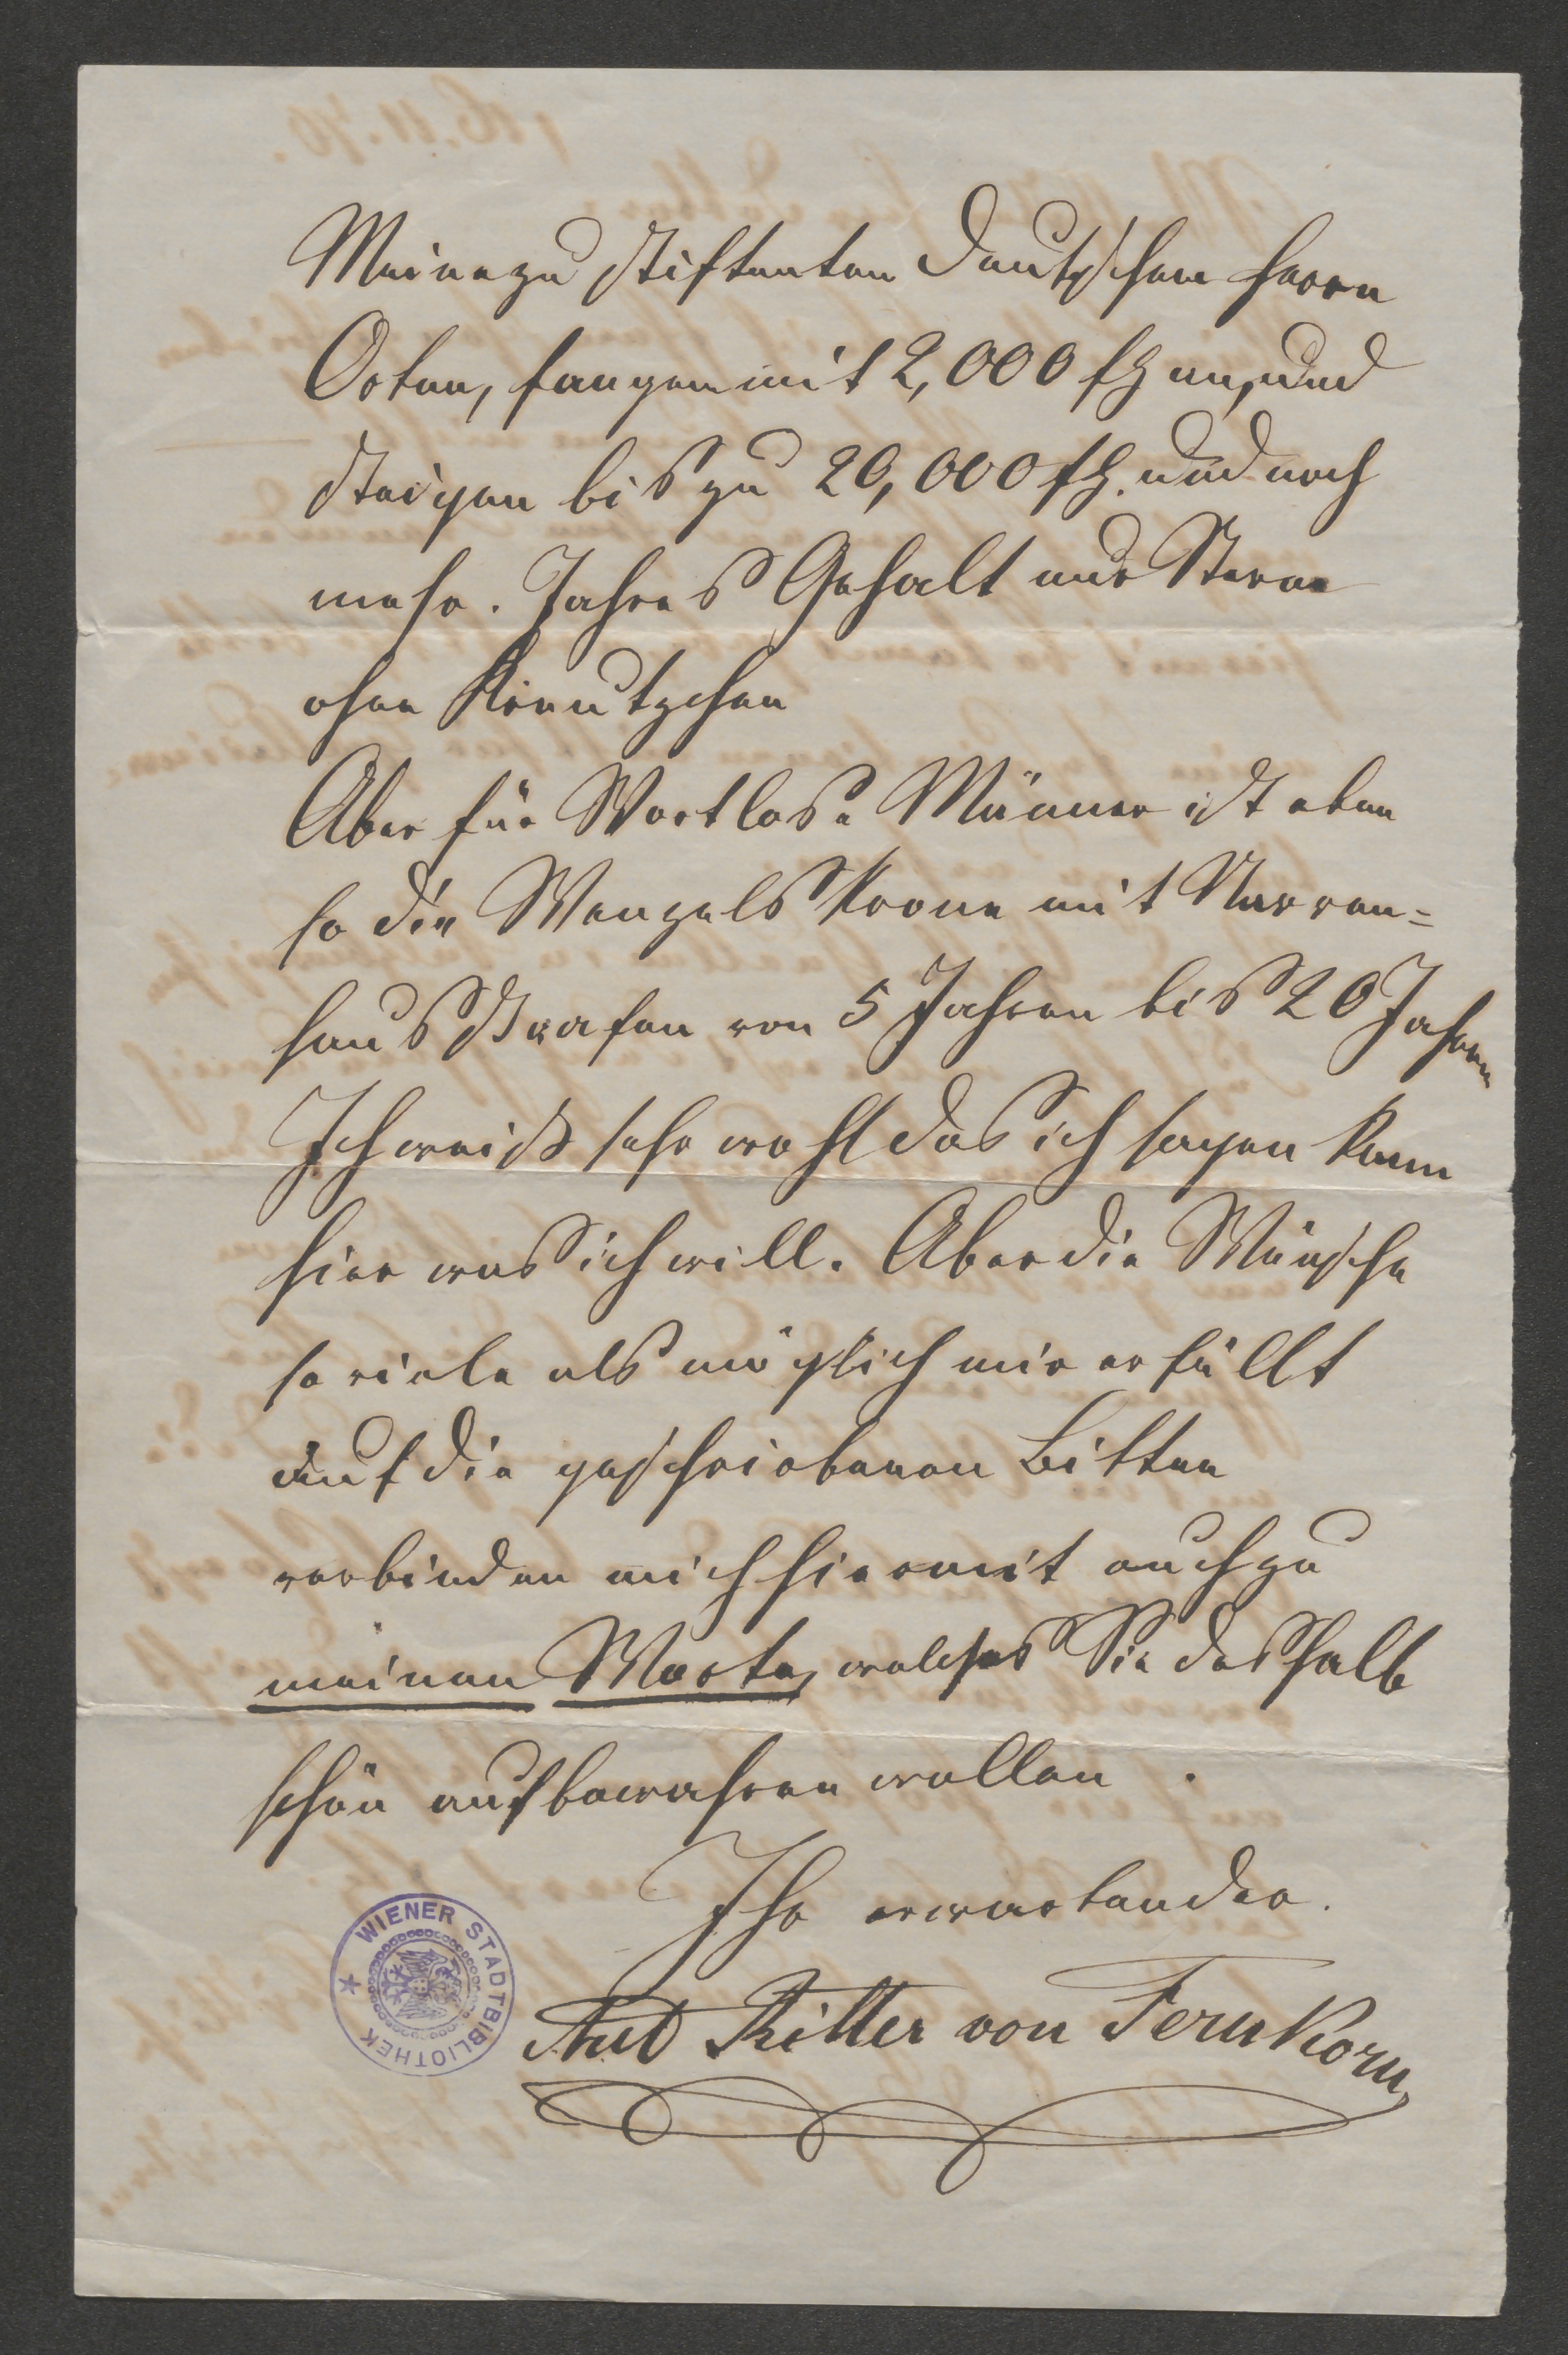 Meine zu stiftenten Deutschen Herrn
Orten, fangen mit 2,000 fl an, und
steigen bis zu 20,000 fl. und noch
mehr. Jahres Gehalt nur Sterne
ohne Kreutzchen
Aber für Wortlose Männer ist eben
so die Wenzels Krone mit Narren=
haus Strafen von 5 Jahren bis 20 Jahren
Ich weiß sehr wohl das ich sagen kann
hier was ich will. Aber die Wünsche
so viele als möglich mir erfüllt
auf die geschriebenen Bitten
verbinden mich hiermit auch zu
meinen Worte, welches Sie deshalb
schön aufbewahren wollen.
Ihr erwartender.
Ant Ritter von Fernkorn
WIENER STADTBIBLIOTHEK